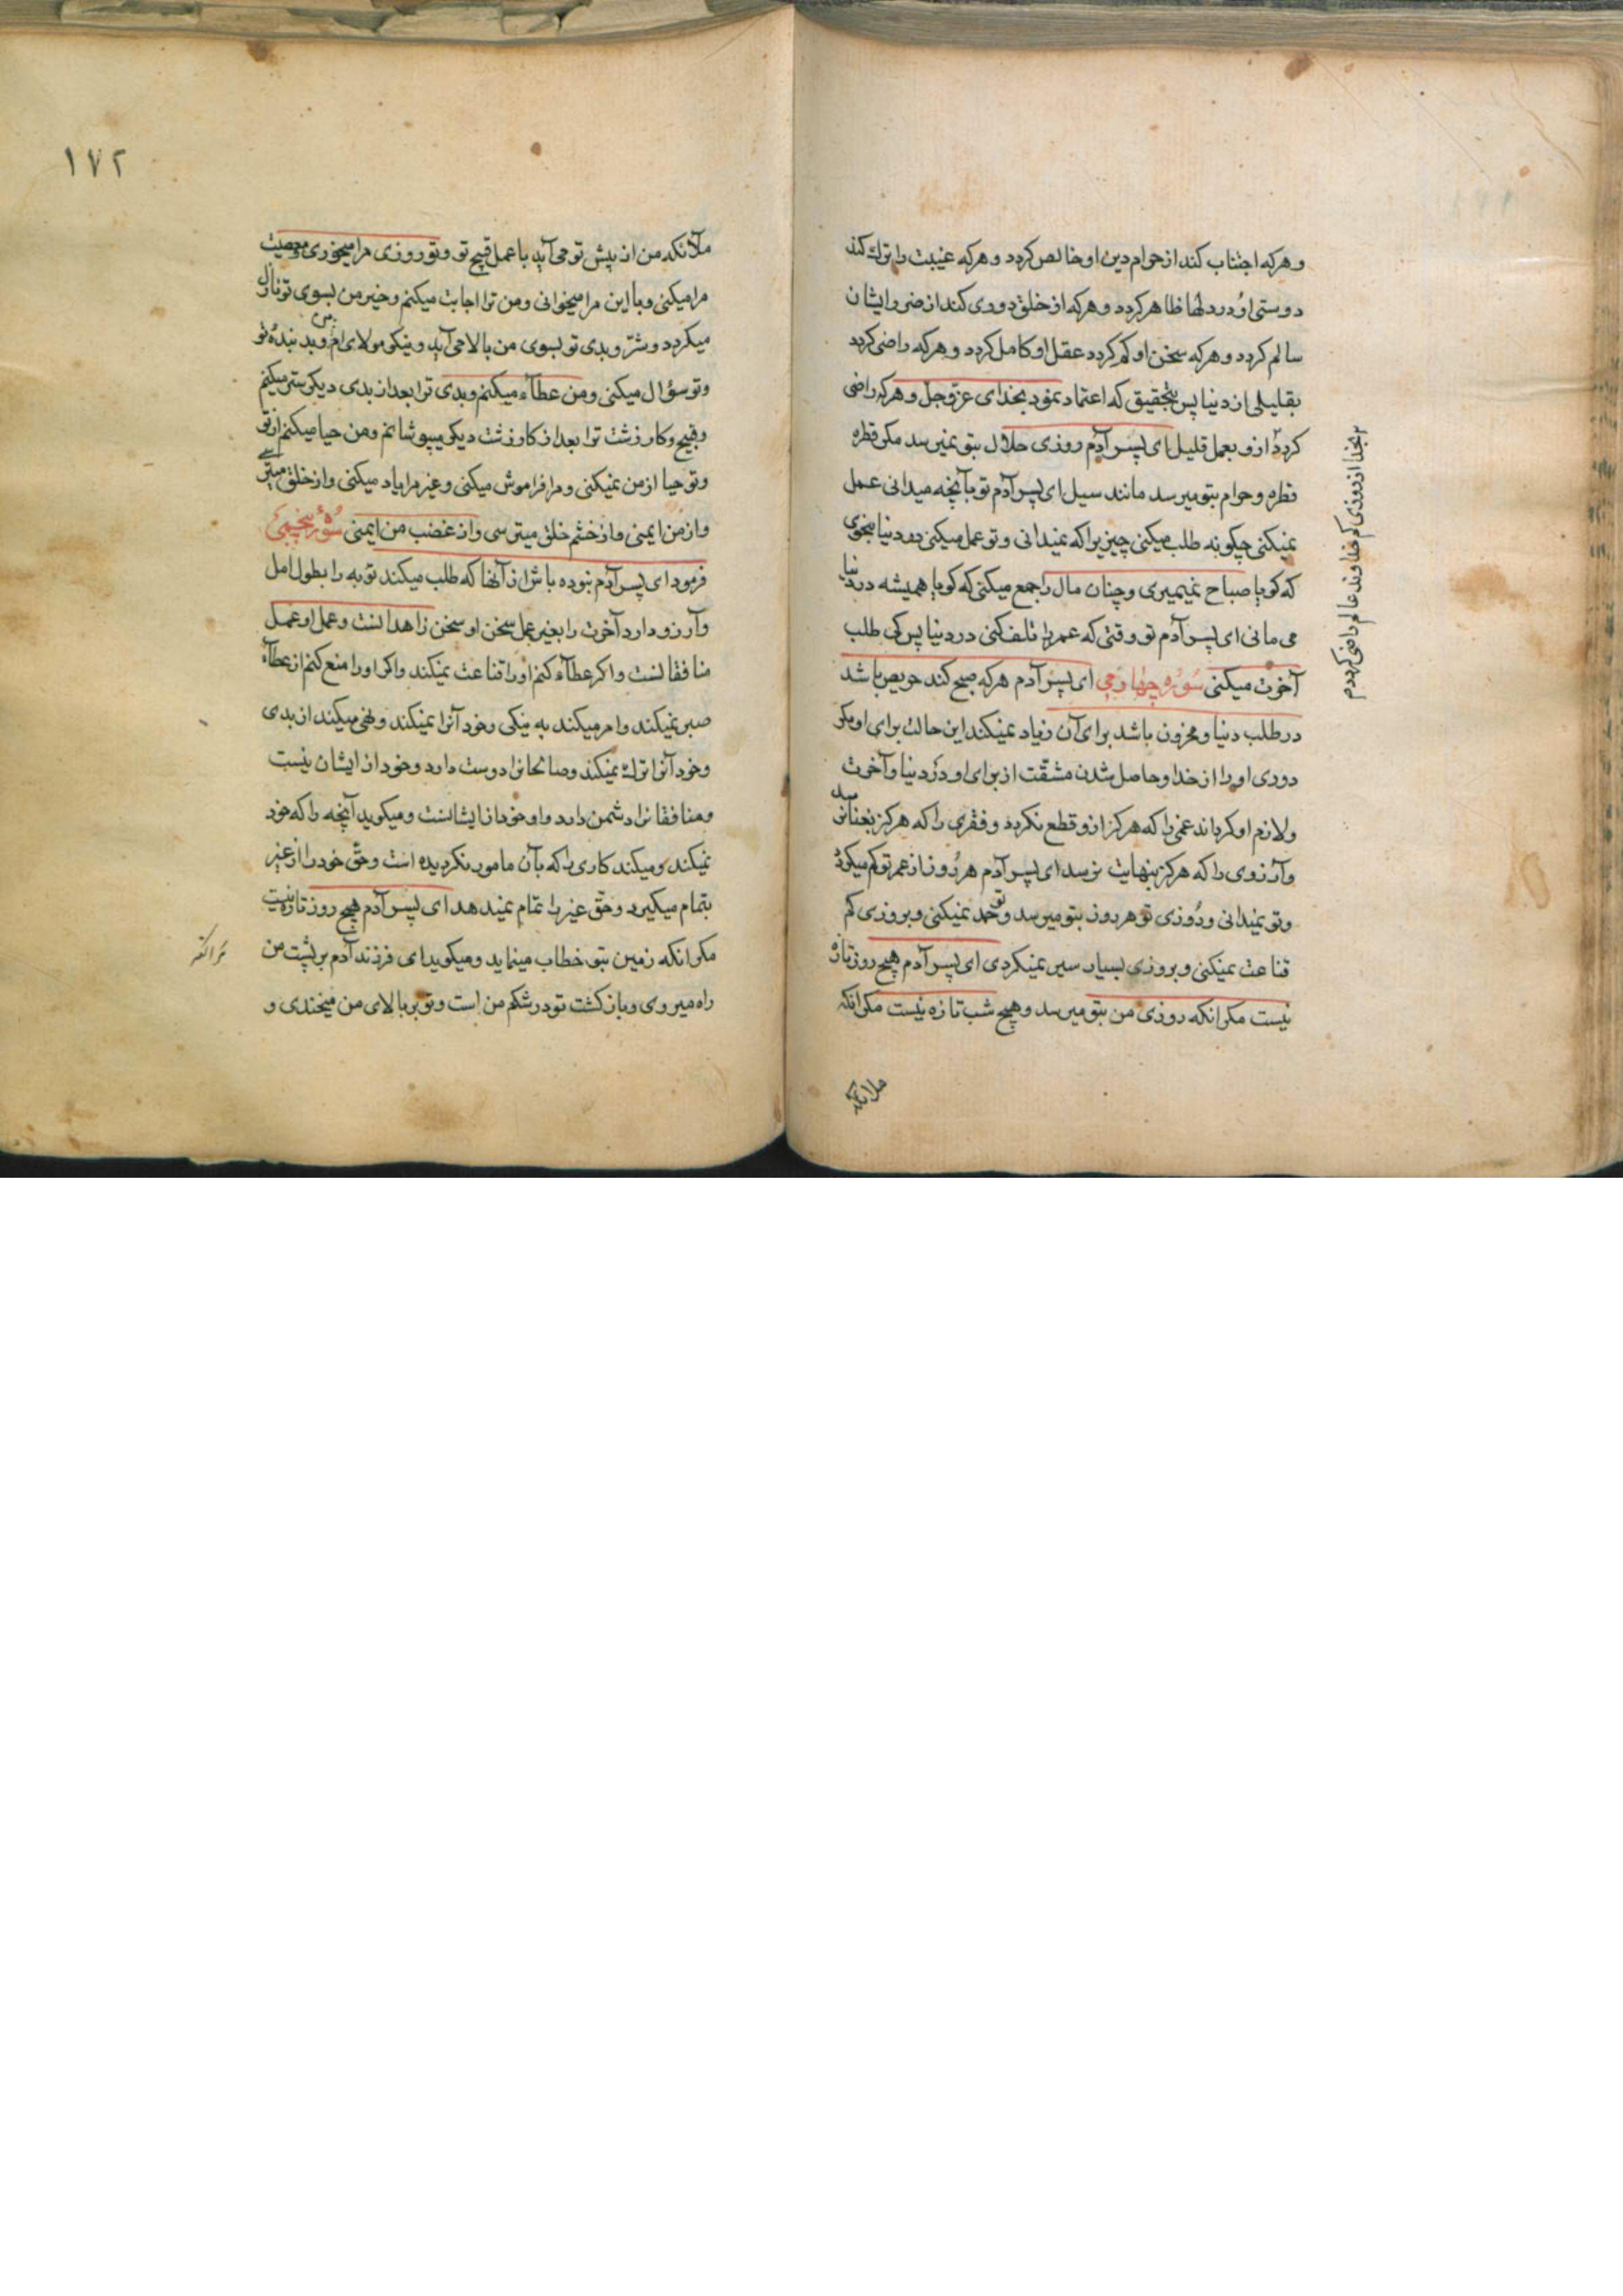 وهرکه اجتناب کند از حرام دین او خالص کردد وهرکه غیبت را ترك کند
دوستی او در دلها ظاهر کردد وهرکه از خلق دوری کند از ضرر ایشان
سالم کردد وهرکه سخن او کم کردد عقل او کامل کردد وهرکه راضی کردد
بقلیلی از دنیا پس بتحقیق که اعتماد نمود بخدای عزوجل وهرکه راضی
کردد ازو بعمل قلیل ای پسر آدم روزی حلال بتو نمیرسد مکر قطره
قطره وحرام بتو میرسد مانند سیل ای پسر آدم تو بآنچه میدانی عمل
نمیکنی چکونه طلب میکنی چیزیرا که نمیدانی وتو عمل میکنی در دنیا بنحوی
که کویا صباح نمیمیری وچنان مال را جمع میکنی که کویا همیشه در دنیا
می مانی ای پسر آدم تو وقتی که عمر را تلف کنی در دنیا پس کی طلب
آخرت میکنی سوره چهارمی ای پسر آدم هرکه صبح کند حریص باشد
در طلب دنیا ومحزون باشد برای آن زیاد نمیکند این حالت برای او مکر
دوری او را از خدا وحاصل شدن مشقت از برای او در دنیا وآخرت
ولازم او کرداند غمی را که هرکز ازو قطع نکردد وفقری را که هرکز بغنا نرسد
وآرزوی را که هرکز بنهایت نرسد ای پسر آدم هر روز از عمر تو کم میکردد
وتو نمیدانی وروزی تو هر روز بتو میرسد وتو حمد نمیکنی وبروزی کم
قناعت نمیکنی وبروزی بسیار سیر نمیکردی ای پسر آدم هیچ روز تازه
نیست مکر انکه روزی من بتو میرسد وهیچ شب تازه نیست مکر انکه
ملائکه
بخدا از روزی کم خداوند عالم راضی کردد
١٧٢
ملائکه من از پیش تو می آید با عمل قبیح تو وتو روزی مرا میخوری ومعصیت
مرا میکنی وبا این مرا میخوانی ومن ترا اجابت میکنم وخیر من بسوی تو نازل
میکردد وشر وبدی تو بسوی من بالا می آید ونیکو مولای ام من وبد بنده تو
وتو سؤال میکنی ومن عطاء میکنم وبدی ترا بعد از بدی دیکر ستر میکنم
وقبیح وکار زشت ترا بعد از کار زشت دیکر میپوشانم ومن حیا میکنم از تو
وتو حیا از من نمیکنی ومرا فراموش میکنی وغیر مرا یاد میکنی واز خلق میترسی
واز من ایمنی واز خشم خلق میترسی واز غضب من ایمنی سوره پنجمی
فرمود ای پسر آدم نبوده باش از آنها که طلب میکند توبه را بطول امل
وآرزو دارد آخرت را بغیر عمل سخن او سخن زاهدانست وعمل او عمل
منافقانست واکر عطاء کنم او را قناعت نمیکند واکر او را منع کنم از عطاء
صبر نمیکند وامر میکند به نیکی وخود آنرا نمیکند ونهی میکند از بدی
وخود آنرا ترك نمیکند وصالحانرا دوست دارد وخود از ایشان نیست
ومنافقانرا دشمن دارد واو خود از ایشانست ومیکوید آنچه را که خود
نمیکند ومیکند کاری را که بآن مامور نکردیده است وحق خود را از غیر
بتمام میکیرد وحق غیر را تمام نمیدهد ای پسر آدم هیچ روز تازه نیست
مکر انکه زمین بتو خطاب مینماید ومیکوید ای فرزند آدم بر پشت من
راه میروی وبازکشت تو در شکم من است وتو بر بالای من میخندی و